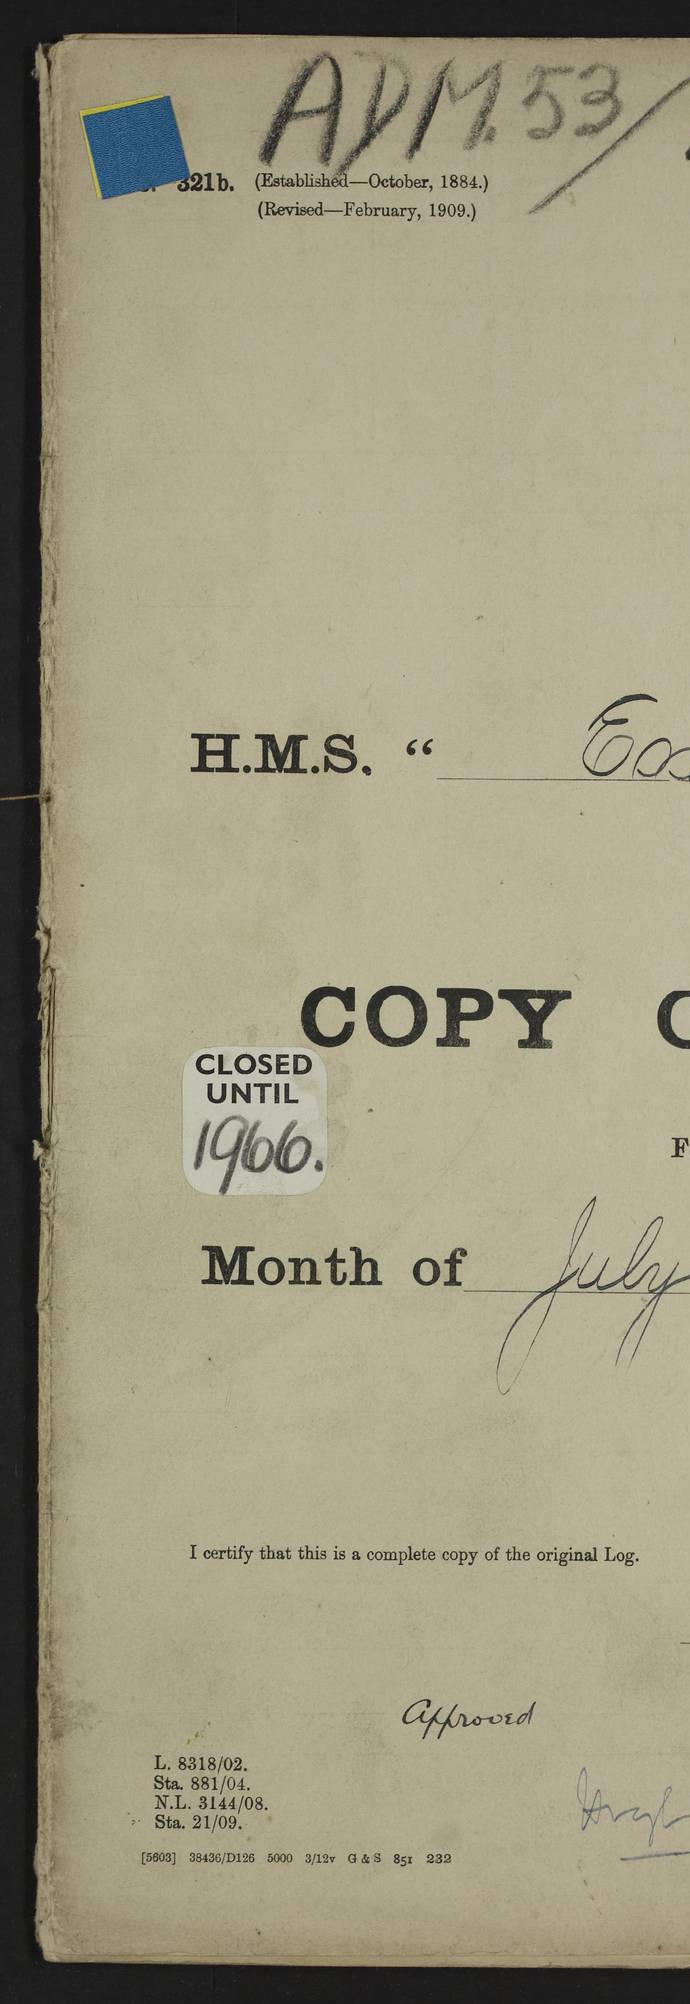 ADM. 53/
321b. (Established—October, 1884.)
(Revised—February, 1909.)
H.M.S. “
COPY
CLOSED
UNTIL
1966.
Month of July
I certify that this is a complete copy of the original Log.
Approved
L. 8318/02.
Sta. 881/04.
N.L. 3144/08.
Sta. 21/09.
[5603] 38436/D126 5000 3/12v G & S 851 232